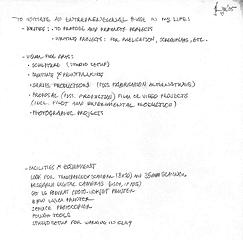 TO INITIATE AN ENTREPRENEURIAL PHASE IN MY LIFE:
- WRITING: - TO PROPOSE AND PROMOTE PROJECTS
- WRITING PROJECTS: FOR PUBLICATION, SCREENPLAYS, ETC.
- VISUAL FINE ARTS:
- SCULPTURE (STUDIO SETUP)
- PAINTING & PRINTMAKING
- SERIES PRODUCTIONS (POSS. FABRICATION ALTERNATIVES)
- PROPOSAL (POSS. PRODUCTION) FILM OR VIDEO PROJECTS
(INCL. PILOT AND EXPERIMENTAL PRODUCTION)
- PHOTOGRAPHIC PROJECTS
- FACILITIES & EQUIPMENT
LOOK FOR TRANSPARENCY SCANNER (8X10) AND 35MM SCANNER
RESEARCH DIGITAL CAMERAS
LARGE FORMAT COLOR INKJET PRINTER
B/W LASER PRINTER
SERVICE PHOTOCOPIER
POWER TOOLS
STAND/SETUP FOR WORKING IN CLAY